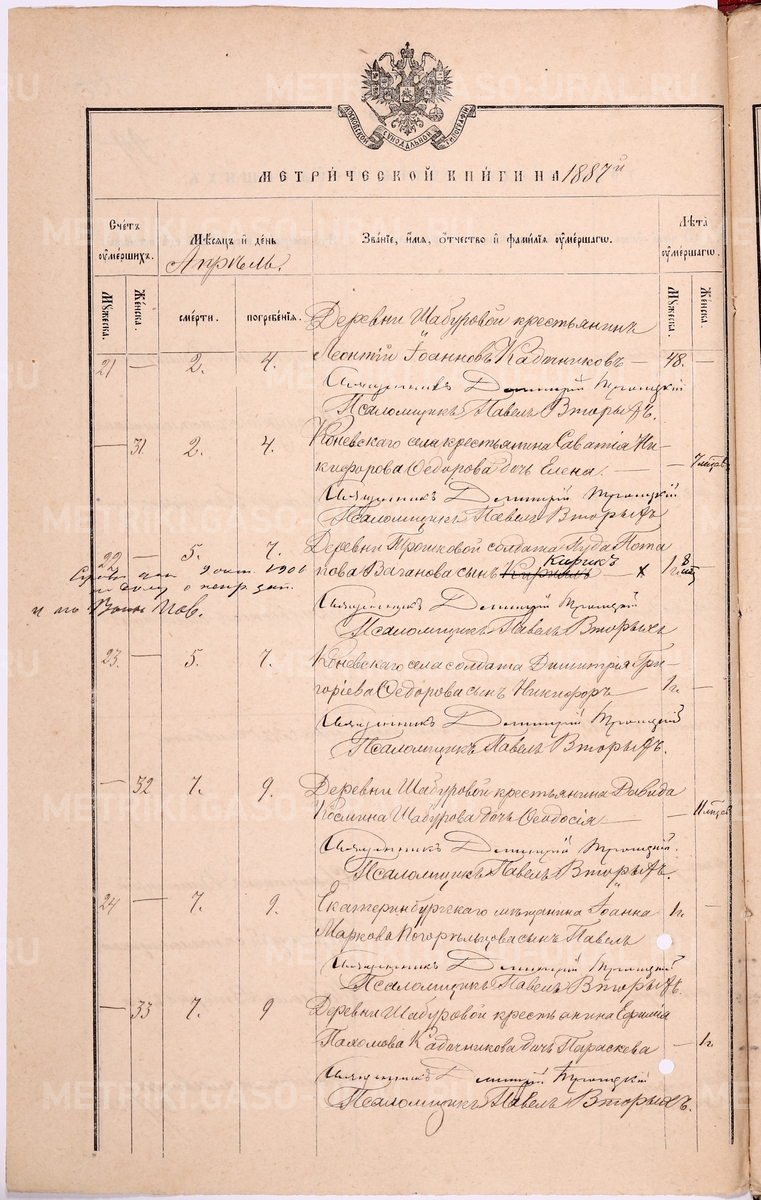 МОСКОВСКОЙ СѴНОДАЛЬНОЙ ТИПОГРАФІИ
МЕТРИ́ЧЕСКОЙ КНИ́ГИ НА 1887й
Сче́тъ ᲂу҆ме́ршихъ.
Мѣ́сяцъ и҆ де́нь
Апрѣль.
Зва́нїе, и҆́мя, ѻ҆́тчество и҆ фами́лїя ᲂу҆ме́ршагѡ.
Лѣ́та ᲂу҆ме́ршагѡ.
Мꙋ́жеска.
Же́нска.
сме́рти.
погребе́нїя.
Мꙋ́жеска.
Же́нска.
Деревни Шабуровой крестьянинъ
21 — 2. 4. Леонтій Іоанновъ Кадочниковъ — 48. —
Священникъ Димитрій Троицкій
Псаломщикъ Павелъ Вторыхъ.
— 31 2. 4. Коневскаго села крестьянина Саватія Ни-
кифорова Ѳедорова дочь Елена. — — 7 мѣсяц.
Священникъ Димитрій Троицкій
Псаломщикъ Павелъ Вторыхъ
22 — 5. 7. Деревни Трошковой солдата Іуда Пота
пова Ваганова сынъ Кирилъ Кирикъ х 1 г. 8 мѣс. —
9 окт 1906
Священникъ Димитрій Троицкій
Псаломщикъ Павелъ Вторыхъ
23. — 5. 7. Коневскаго села солдата Димитрія Гри-
горіева Ѳедорова сынъ Никифоръ 1 г. —
Священникъ Димитрій Троицкій
Псаломщикъ Павелъ Вторыхъ.
— 32 7. 9. Деревни Шабуровой крестьянина Давида
Космина Шабурова дочь Ѳеодосія — — 11 мѣсяц
Священникъ Димитрій Троицкій.
Псаломщикъ Павелъ Вторыхъ.
24 — 7. 9. Екатеринбургскаго мѣщанина Іоанна 1 г. —
Маркова Погорѣльцова сынъ Павелъ
Священникъ Димитрій Троицкій
Псаломщикъ Павелъ Вторыхъ.
— 33 7. 9 Деревни Шабуровой крестьянина Ефимія
Пахомова Кадочникова дочь Параскева — 1 г.
Священникъ Димитрій Троицкій
Псаломщикъ Павелъ Вторыхъ.
METRIKI.GASO-URAL.RU